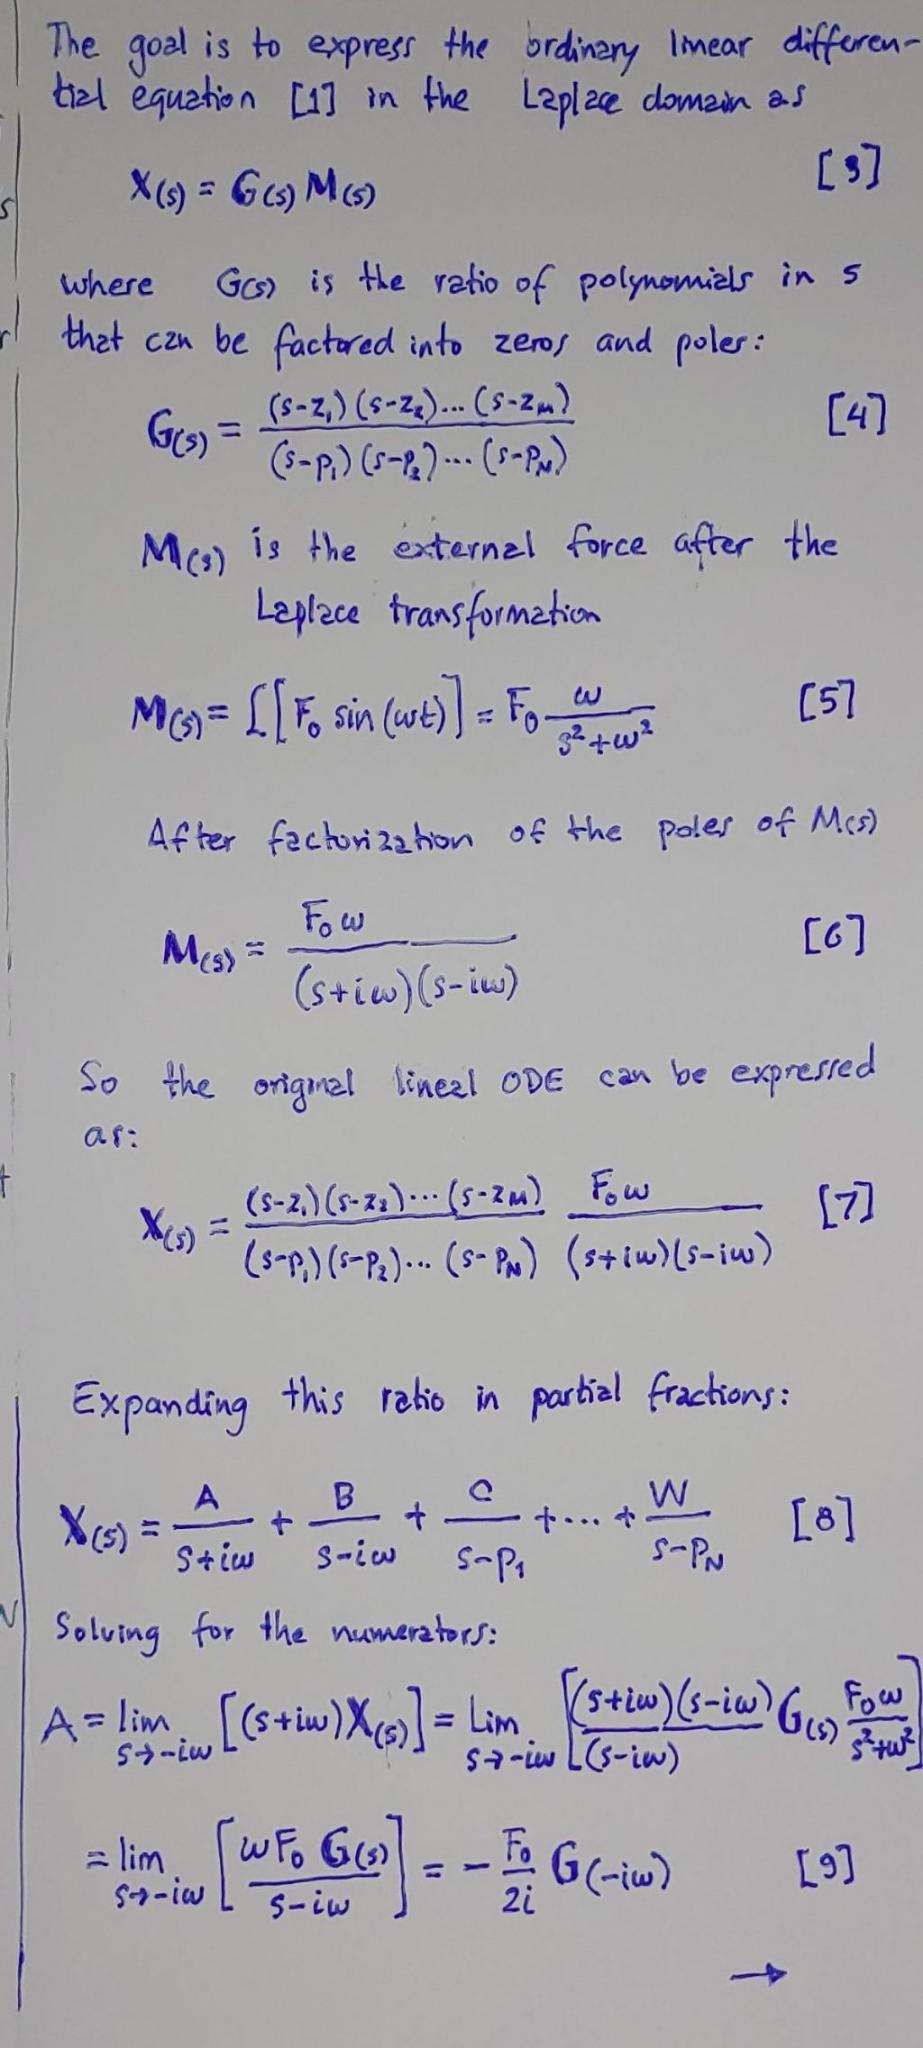 The goal is to express the ordinary linear differen-
tial equation [1] in the Laplace domain as
X(s) = G(s) M(s) [3]
where G(s) is the ratio of polynomials in s
that can be factored into zeros and poles:
G(s) = (s-z₁)(s-z₂)...(s-z_M) / (s-p₁)(s-p₂)...(s-p_N) [4]
M(s) is the external force after the
Laplace transformation
M(s) = ℒ[F₀ sin(ωt)] = F₀ ω / s²+ω² [5]
After factorization of the poles of M(s)
M(s) = F₀ω / (s+iω)(s-iω) [6]
So the original lineal ODE can be expressed
as:
X(s) = (s-z₁)(s-z₂)...(s-z_M) / (s-p₁)(s-p₂)...(s-p_N) F₀ω / (s+iω)(s-iω) [7]
Expanding this ratio in partial fractions:
X(s) = A / s+iω + B / s-iω + C / s-p₁ + ... + W / s-p_N [8]
Solving for the numerators:
A = lim s→-iω [(s+iω)X(s)] = Lim s→-iω [(s+iω)(s-iω) / (s-iω) G(s) F₀ω / s²+ω²]
= lim s→-iω [ωF₀ G(s) / s-iω] = - F₀ / 2i G(-iω) [9]
→